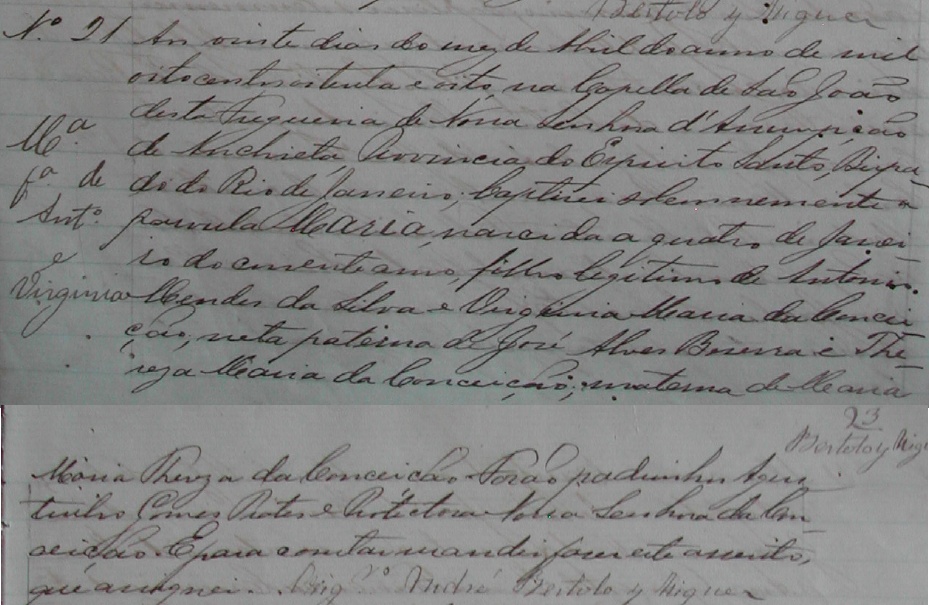 Bertolo y Miguer
Nº 21
Mª
fª. de
Antº
e
Virginia
Aos vinte dias do mez de Abril do anno de mil
oitocentos oitenta e oito, na Capella de São João
desta Freguezia de Nossa Senhora d'Assumpção
de Anchieta Provincia do Espirito Santo, Bispa-
do do Rio de Janeiro, baptizei solemnemente a
parvula MARIA, nascida a quatro de Janei-
ro do corrente anno, filha legitima de Antonio
Mendes da Silva e Virginia Maria da Concei-
ção, neta paterna de José Alves Bezerra e The-
reza Maria da Conceição; materna de Maria
23
Bertolo y Mig
Maria Thereza da Conceição. Forão padrinhos
Gomes e Protectora Nossa Senhora da Con-
ceição. E para constar mandei fazer este assento,
que assignei. Vigrº André Bertolo y Miguer